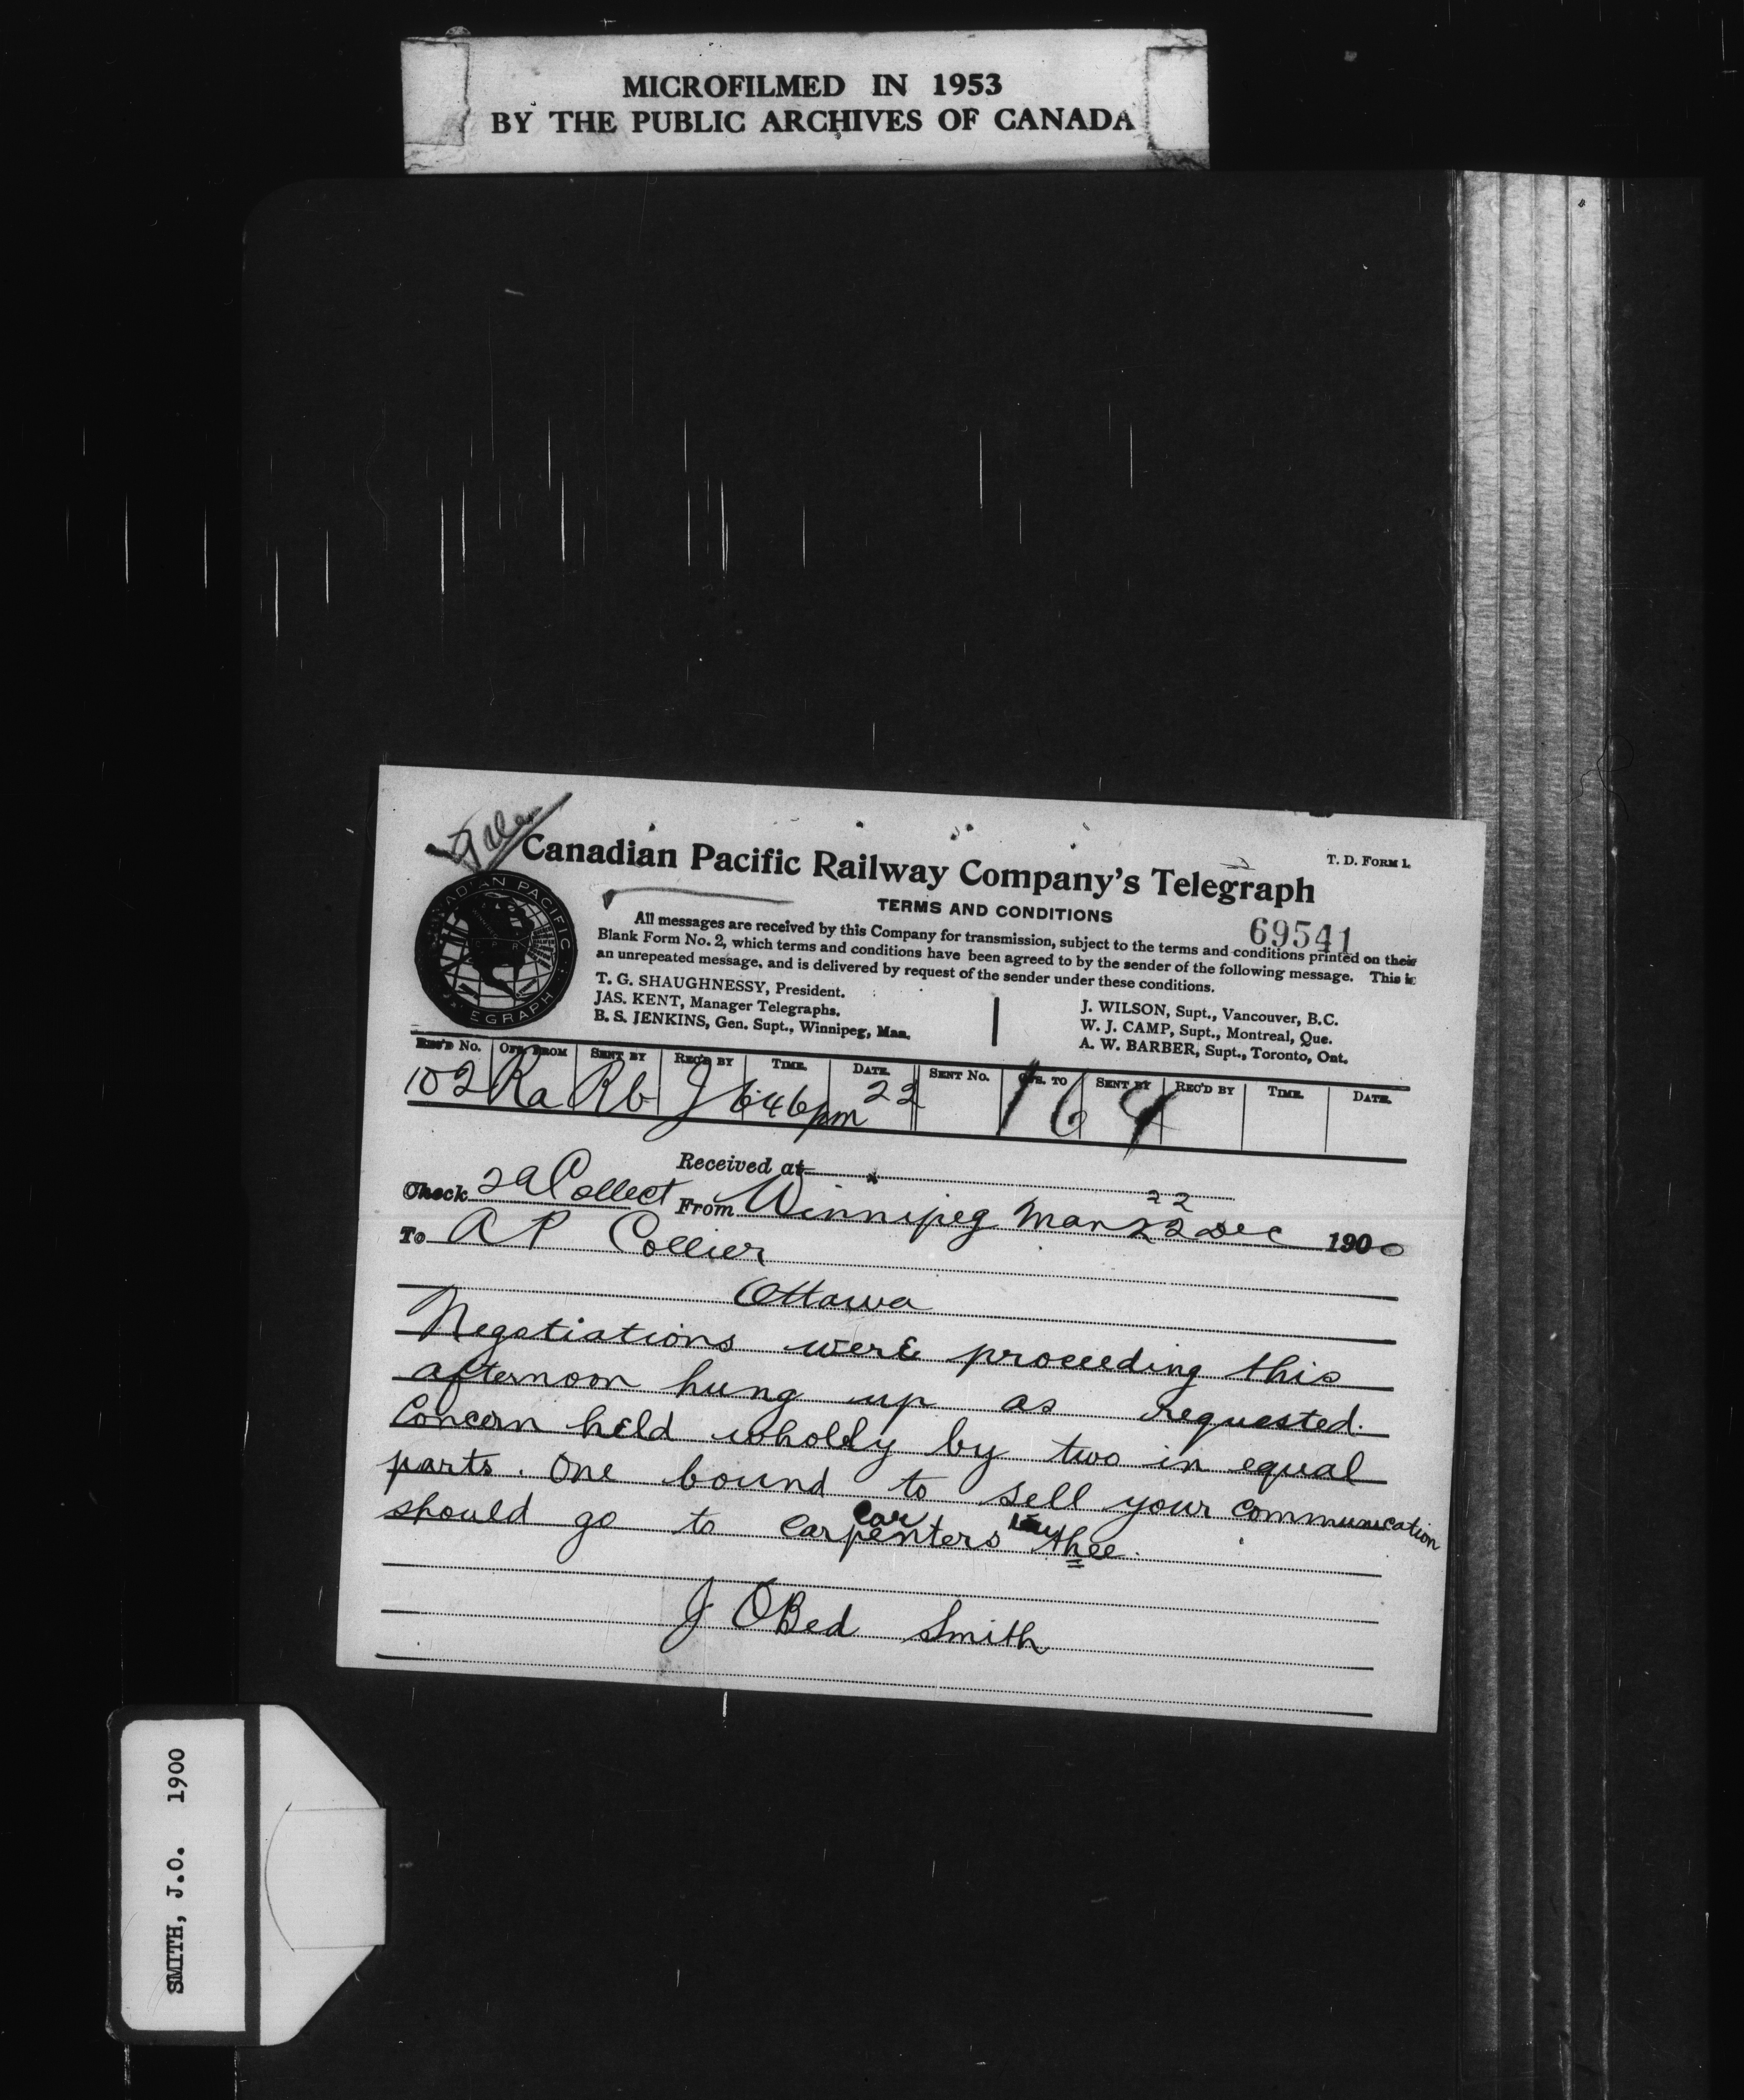 MICROFILMED IN 1953
BY THE PUBLIC ARCHIVES OF CANADA
Canadian Pacific Railway Company's Telegraph
T. D. FORM 1.
TERMS AND CONDITIONS
69541
All messages are received by this Company for transmission, subject to the terms and conditions printed on their
Blank Form No. 2, which terms and conditions have been agreed to by the sender of the following message. This is
an unrepeated message, and is delivered by request of the sender under these conditions.
T. G. SHAUGHNESSY, President.
JAS. KENT, Manager Telegraphs.
B. S. JENKINS, Gen. Supt., Winnipeg, Man.
J. WILSON, Supt., Vancouver, B.C.
W. J. CAMP, Supt., Montreal, Que.
A. W. BARBER, Supt., Toronto, Ont.
REC'D No. OFF. FROM SENT BY REC'D BY TIME. DATE. SENT No. OFF. TO SENT BY REC'D BY TIME. DATE.
102 Ra Rb J 646pm 22 164
Received at
Check 29 Collect From Winnipeg Man 22 Dec 1900
22
To A P Collier
Ottawa
Negotiations were proceeding this
afternoon hung up as requested.
Concern held wholly by two in equal
parts. One bound to sell your communication
should go to Carpenters thee.
car
J OBed Smith
SMITH, J.O. 1900